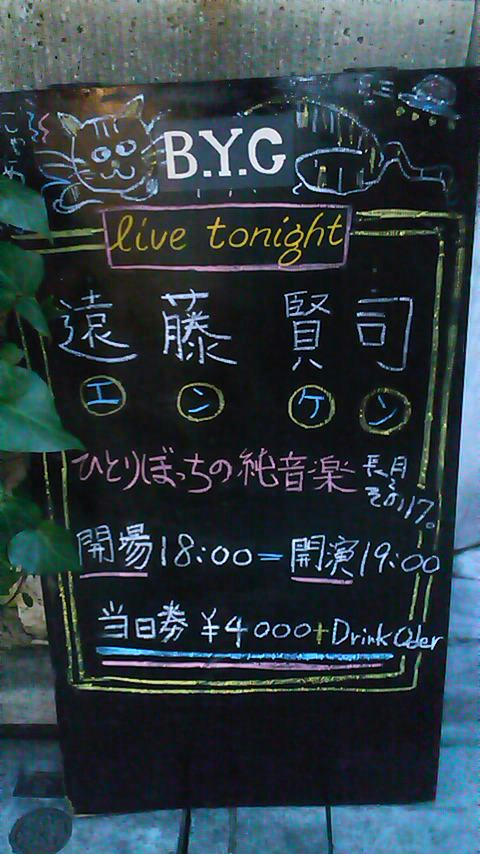 B.Y.G
live tonight
遠藤賢司
エンケン
ひとりぼっちの純音楽 長月
その17。
開場18:00=開演19:00
当日券¥4000+Drink Oder